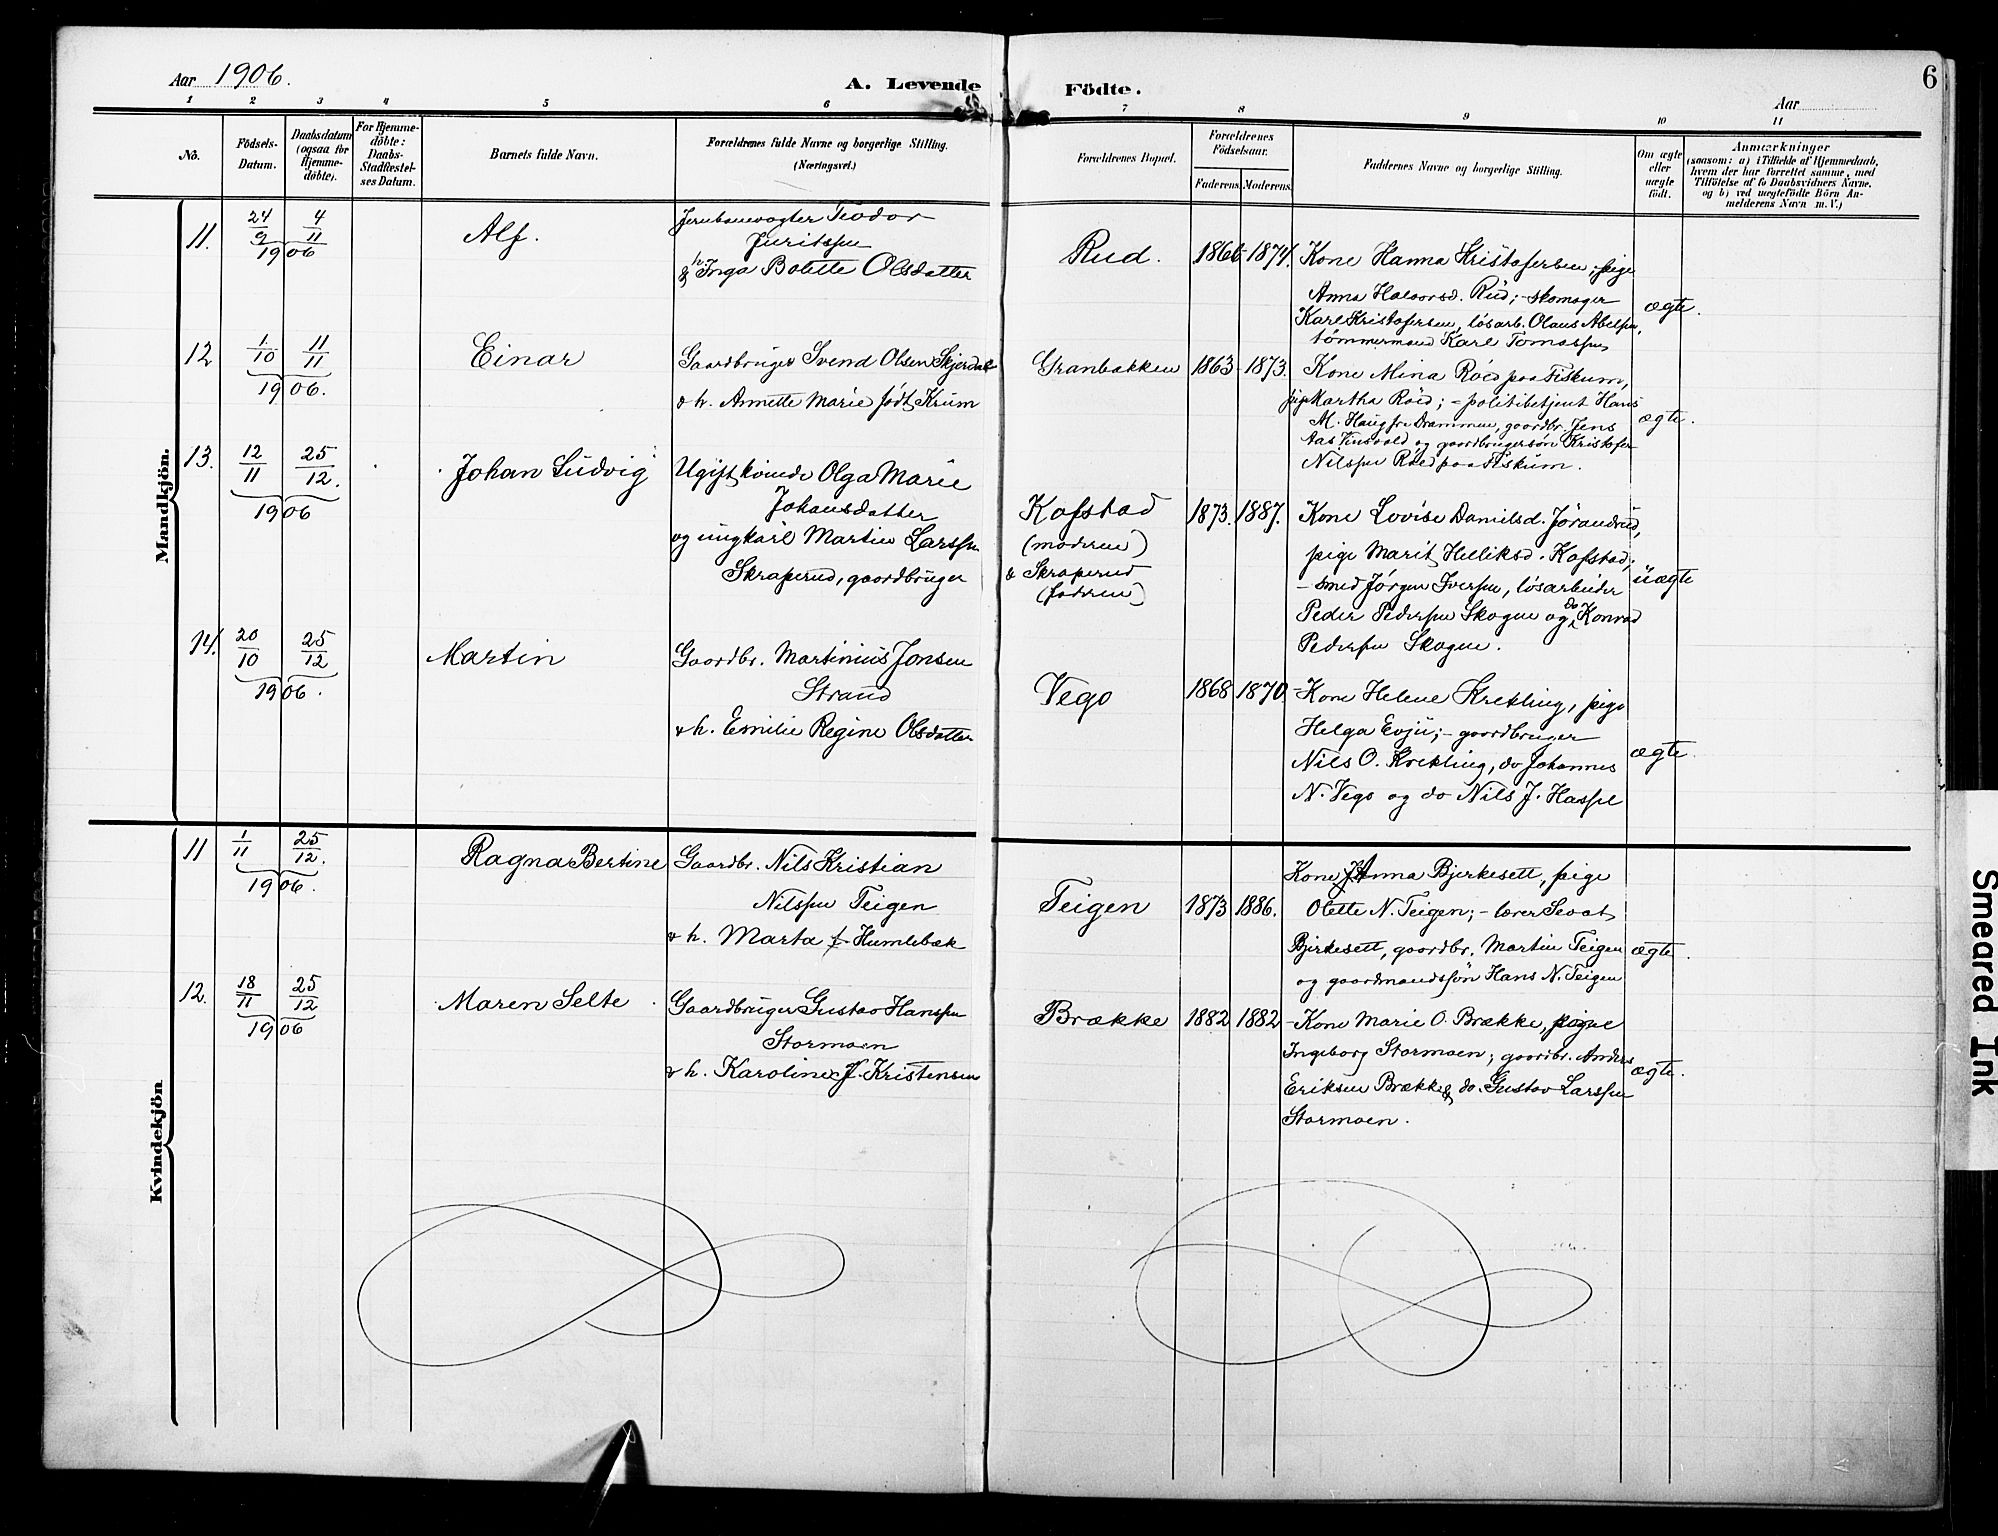 Aar 1906.
A. Levende Födte.
6
Aar
1 2 3 4 5 6 7 8 9 10 11
No.
Födsels-Datum.
Daabsdatum (ogsaa for Hjemme-döbte).
For Hjemme-döbte: Daabs-Stadfæstel-ses Datum.
Barnets fulde Navn.
Forældrenes fulde Navne og borgerlige Stilling. (Næringsvei.)
Forældrenes Bopæl.
Forældrenes Födselsaar.
Faderens. Moderens.
Faddernes Navne og borgerlige Stilling.
Om ægte eller uægte födt.
Anmærkninger
(saasom: a) i Tilfælde af Hjemmedaab,
hvem der har forrettet samme, med
Tilföielse af to Daabsvidners Navne,
og b) ved uægtefödte Börn An-
melderens Navn m. V.)
Mandkjön.
11. 24/9 4/11 1906
Alf.
Jernbanevogter Teodor
Juritssen
& h. Inga Bolette Olsdatter
Rud. 1866 - 1874.
Kone Hanna Kristofersen; pige
Anna Halvorsd. Rud; - skomager
Karl Kristofersen, løsarb. Olaus Abelsen,
tømmermand Karl Tomassen
ægte.
12 1/10 11/11 1906.
Einar
Gaardbruger Svend Olsen Skjerdal
& h. Annette Marie født Krum
Granbakken 1863 - 1873.
Kone Mina Röed paa Fiskum,
pige Martha Röed; - politibetjent Hans
M. Haug fra Drammen, gaardbr. Jens
Aas Vinsvold og gaardbrugersøn Kristofer
Nilssen Röed paa Fiskum.
ægte.
13. 12/11 25/12. 1906
Johan Ludvig
Ugift kvinde Olga Marie
Johansdatter
og ungkarl Martin Larssen
Skraperud, gaardbruger
Kofstad
(moderen)
& Skraperud
(faderen)
1873. 1887.
Kone Lovise Danielsd. Jørandrud,
pige Marit Helliksd. Kofstad;
- smed Jørgen Iversen, løsarbeider
Peder Pedersen Skogen og do Konrad
Pedersen Skogen.
uægte
14. 20/10 25/12 1906.
Martin
Gaardbr. Martinius Jonsen
Strand
& h. Emilie Regine Olsdatter
Vego 1868 1870.
- Kone Helene Krekling, pige
Helga Evju; - gaardbruger
Nils O. Krekling, do Johannes
N. Vego og do Nils J. Hassel
ægte.
Kvindekjön
11 1/11 25/12. 1906.
Ragna Bertine
Gaardbr. Nils Kristian
Nilssen Teigen
& h. Marta f. Humlebæk
Teigen 1873 1886.
Kone Anna Bjerkesett, pige
Olette N. Teigen; - lærer Sevat
Bjerkesett, gaardbr. Martin Teigen
og gaardmandssøn Hans N. Teigen
ægte.
12. 18/11 25/12 1906
Maren Selte.
Gaardbruger Gustav Hanssen
Stormoen
& h. Karoline f. Kristensen
Brække 1882 1882
- Kone Marie O. Brække, pige
Ingeborg Stormoen; gaardbr. Anders
Eriksen Brække & do. Gustav Larssen
Stormoen.
ægte.
Smeared Ink